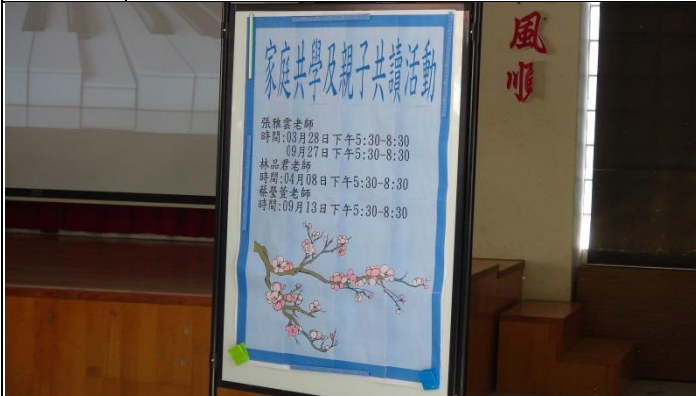 家庭共學及親子共讀活動
張雅雲老師
時間:03月28日下午5:30-8:30
09月27日下午5:30-8:30
林品君老師
時間:04月08日下午5:30-8:30
蔡瑩萱老師
時間:09月13日下午5:30-8:30
風
順